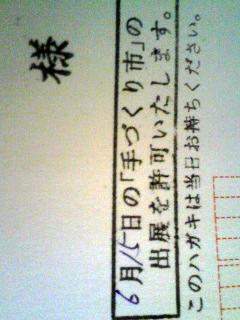 様
6月15日の「手づくり市」の
出展を許可いたします。
このハガキは当日お持ちください。